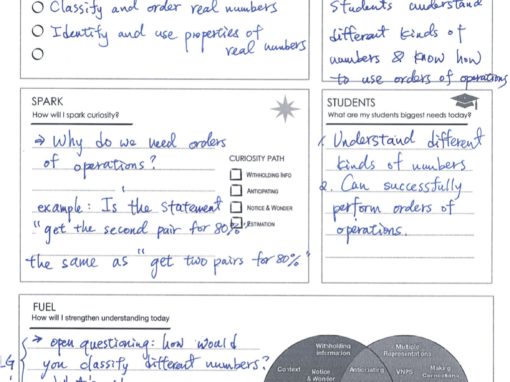 ○ Classify and order real numbers
○ Identify and use properties of
real numbers
○
Students understand
different kinds of
numbers & know how
to use orders of operations
SPARK
How will I spark curiosity?
→ Why do we need orders
of operations?
example: Is the statement
"get the second pair for 80%"
the same as "get two pairs for 80%"
CURIOSITY PATH
WITHHOLDING INFO
ANTICIPATING
NOTICE & WONDER
ESTIMATION
STUDENTS
What are my students biggest needs today?
1. Understand different
kinds of numbers
2. Can successfully
perform orders of
operations.
FUEL
How will I strengthen understanding today
→ open questioning: how would
you classify different numbers?
LG
Withholding
Information
Multiple
Representations
Context
Notice
& Wonder
Anticipating
VNPS
Making
Connections